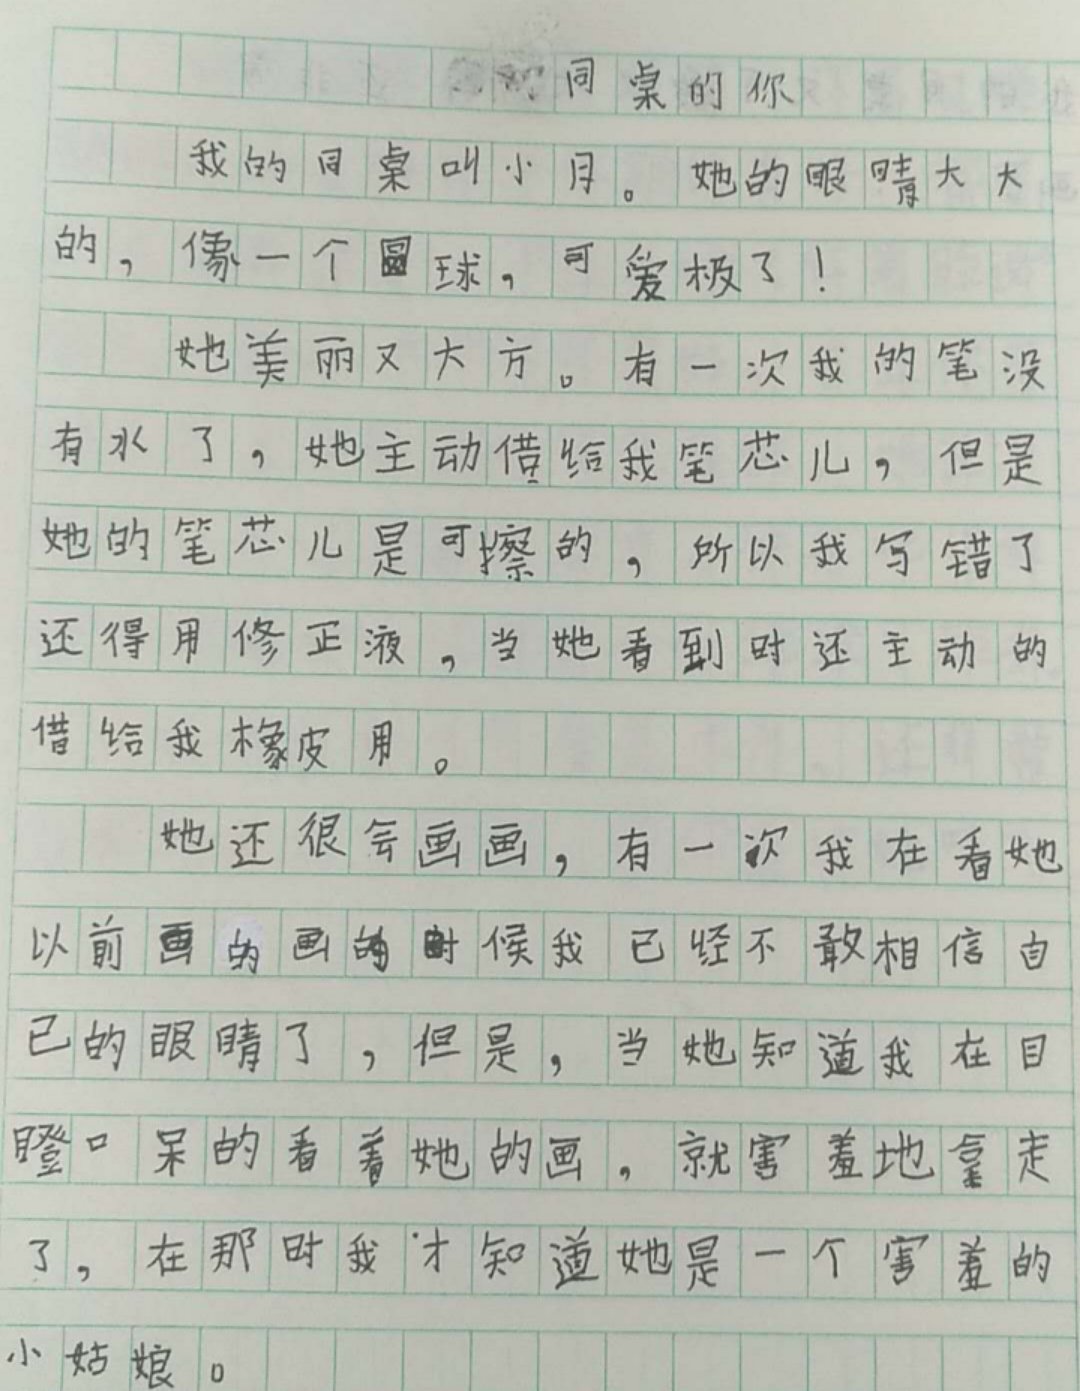 同桌的你
我的同桌叫小月。她的眼睛大大
的，像一个圆球，可爱极了！
她美丽又大方。有一次我的笔没
有水了，她主动借给我笔芯儿，但是
她的笔芯儿是可擦的，所以我写错了
还得用修正液，当她看到时还主动的
借给我橡皮用。
她还很会画画，有一次我在看她
以前画的画的时候我已经不敢相信自
已的眼睛了，但是，当她知道我在目
瞪口呆的看着她的画，就害羞地拿走
了，在那时我才知道她是一个害羞的
小姑娘。